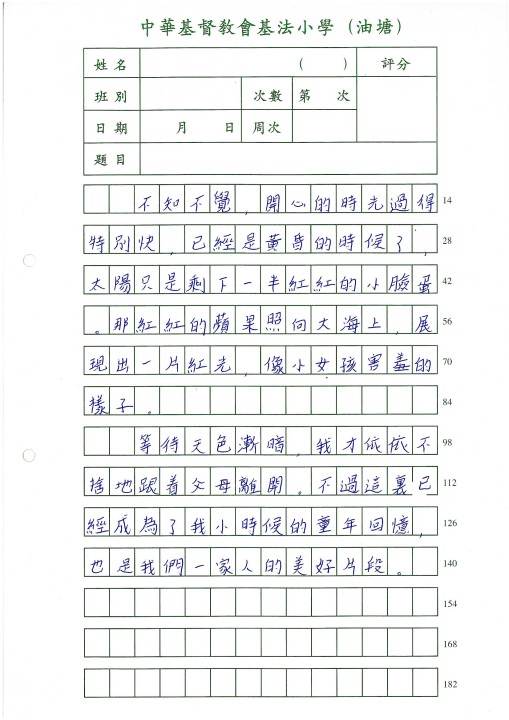 中華基督教會基法小學（油塘）
姓名 （ ） 評分
班別 次數 第 次
日期 月 日 周次
題目
不知不覺，開心的時光過得 14
特別快，已經是黃昏的時候了， 28
太陽只是剩下一半紅紅的小臉蛋 42
。那紅紅的蘋果照向大海上，展 56
現出一片紅光，像小女孩害羞的 70
樣子。 84
等待天色漸暗，我才依依不 98
捨地跟着父母離開。不過這裏已 112
經成為了我小時候的童年回憶， 126
也是我們一家人的美好片段。 140
154
168
182